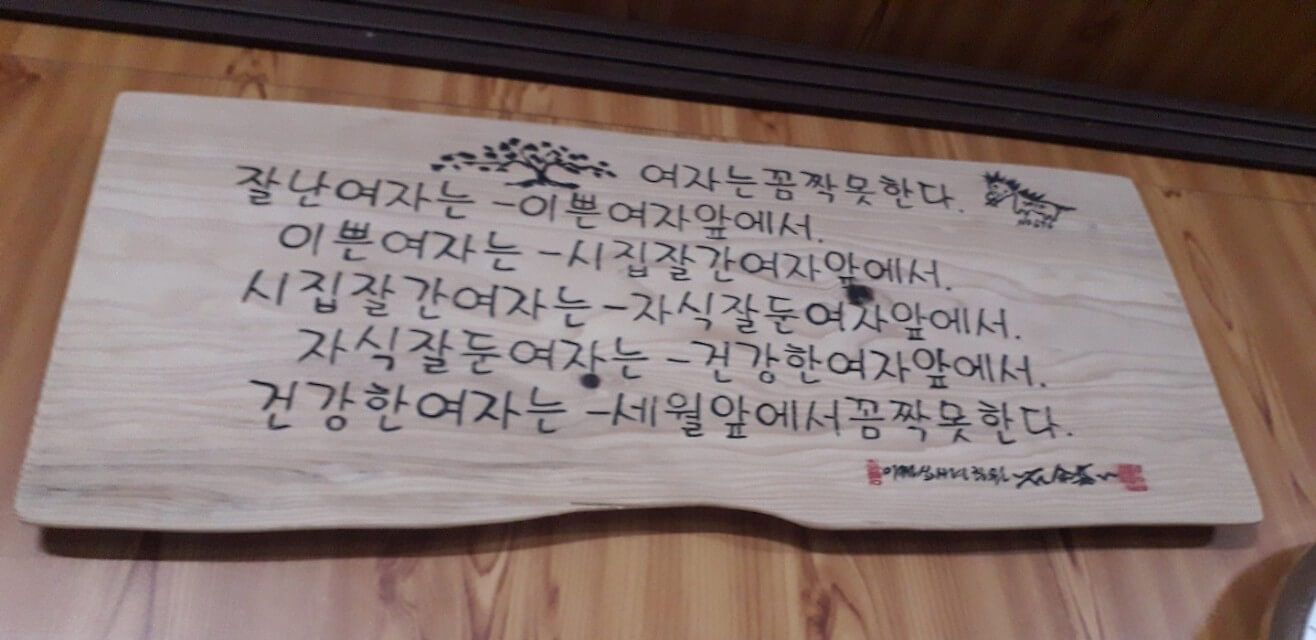 여자는꼼짝못한다.
잘난여자는 -이쁜여자앞에서.
이쁜여자는 -시집잘간여자앞에서.
시집잘간여자는 -자식잘둔여자앞에서.
자식잘둔여자는 -건강한여자앞에서.
건강한여자는 -세월앞에서꼼짝못한다.